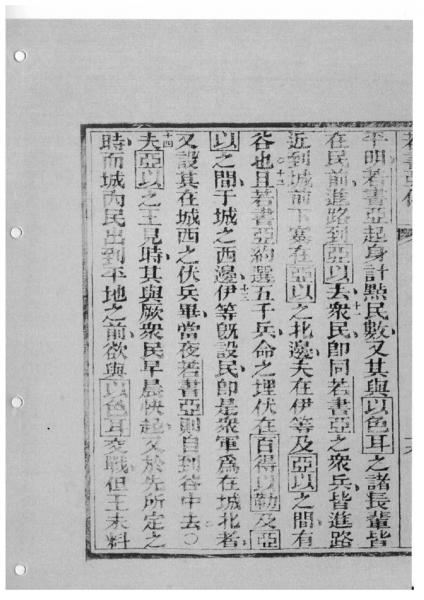 若書亞傳
平明若書亞起身計點民數又其與以色耳之諸長輩皆
在民前進路到亞以去衆民卽同若書亞之衆兵皆進路
近到城前下寨在亞以之北邊夫在伊等及亞以之間有
谷也且若書亞約選五千兵命之埋伏在百得以勒及亞
以之間于城之西邊伊等旣設民卽是衆軍爲在城北者
又設其在城西之伏兵畢當夜若書亞則自到谷中去○
十四
夫亞以之王見時其與厥衆民早晨快起又於先所定之
時而城內民出到平地之前欲與以色耳交戰但王未料